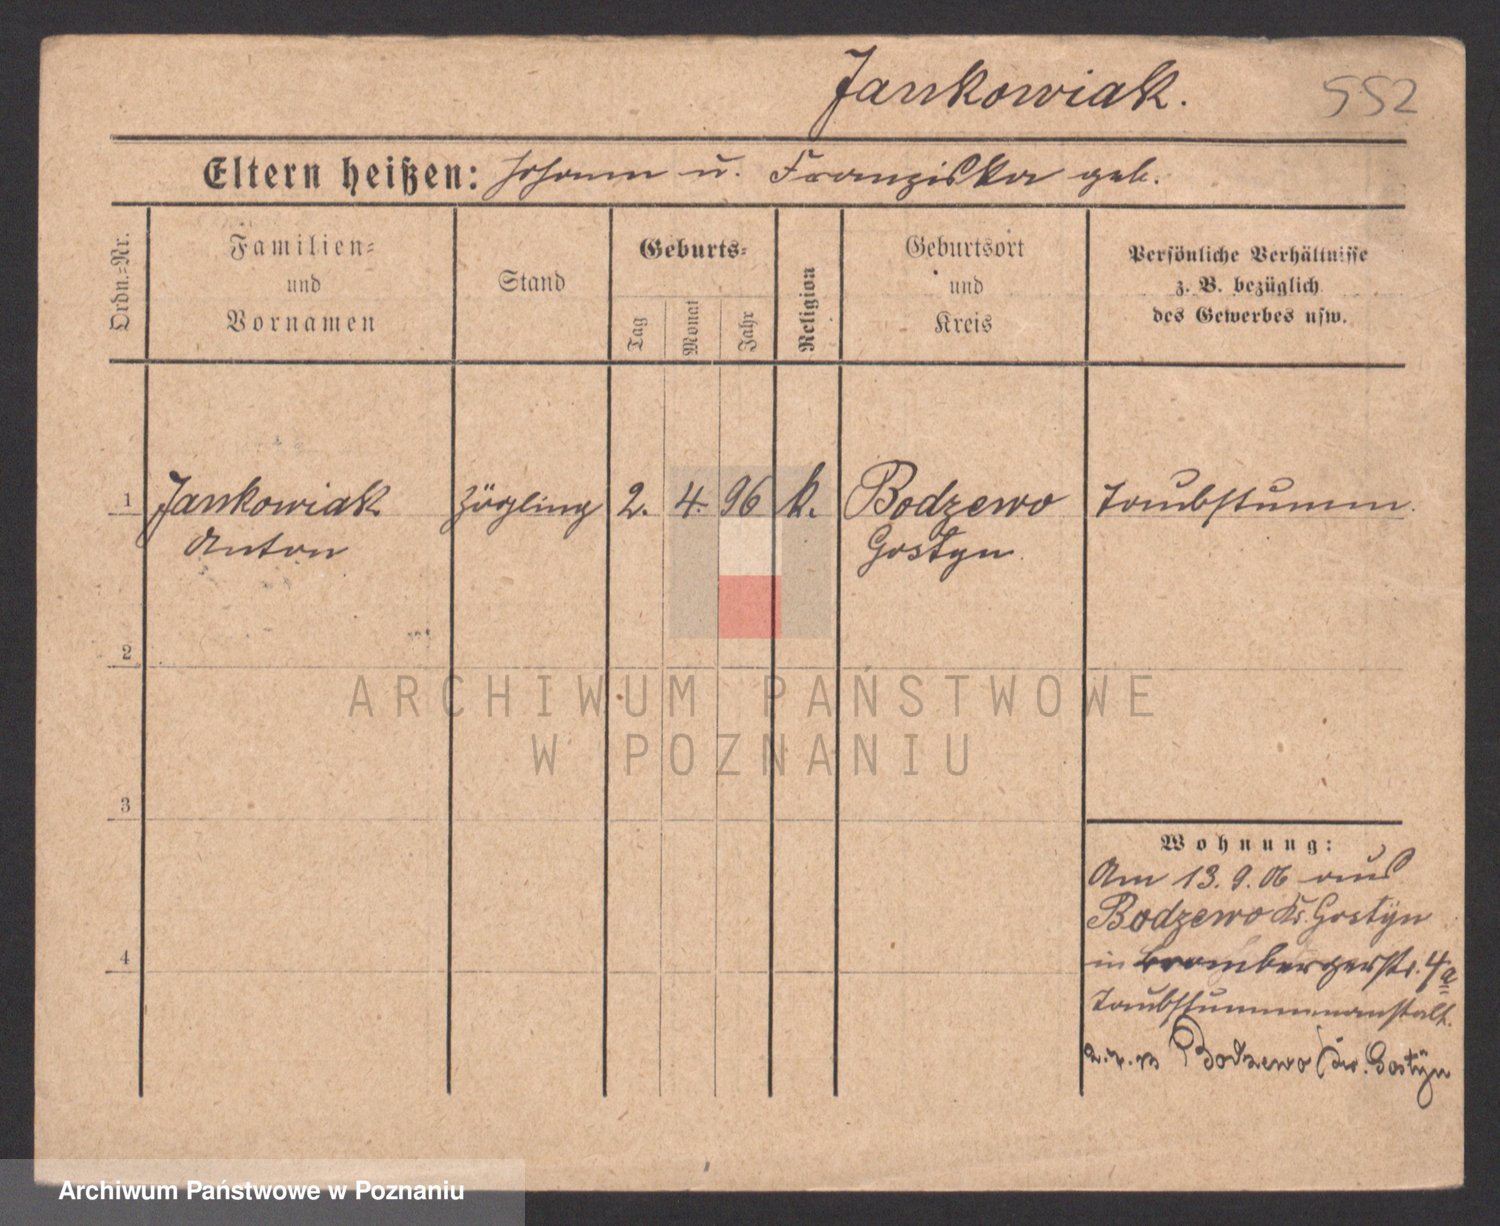 Jankowiak.
552
Eltern heißen: Johann u. Franziska geb.
Ordn.=Nr.
Familien=
und
Vornamen
Stand
Geburts=
Tag
Monat
Jahr
Religion
Geburtsort
und
Kreis
Persönliche Verhältnisse
z. B. bezüglich
des Gewerbes usw.
1 Jankowiak Zögling 2. 4. 96 k. Bodzewo Taubstumm.
Anton Gostyn.
2
ARCHIWUM PAŃSTWOWE
W POZNANIU
3
Wohnung:
Am 13.9.06 aus
Bodzewo Kr. Gostÿn
4
in Brombergerstr. 4a
Taubstummenanstalt.
Bodzewo Kr. Gostÿn
Archiwum Państwowe w Poznaniu